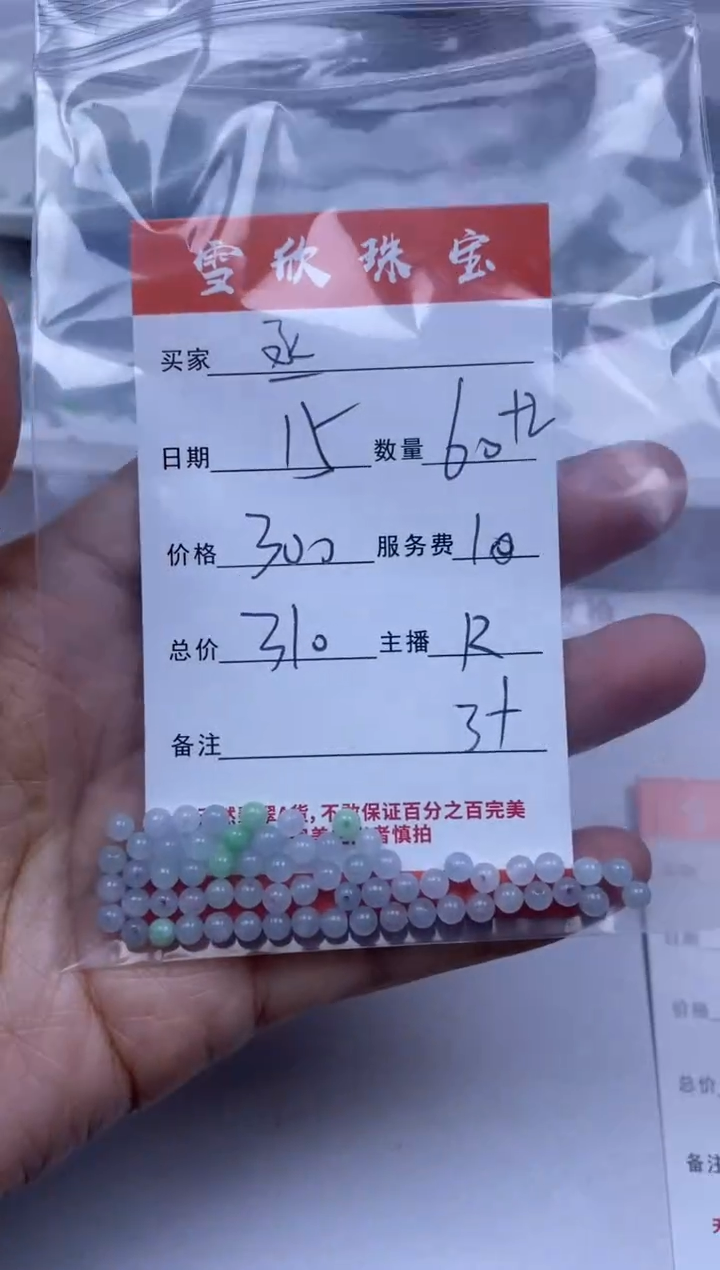 雪欣珠宝
买家 永
日期 15 数量 60
价格 300 服务费 10
总价 310 主播 R
备注 3十
然翡翠A货,不敢保证百分之百完美
者慎拍
价格
总价
备注